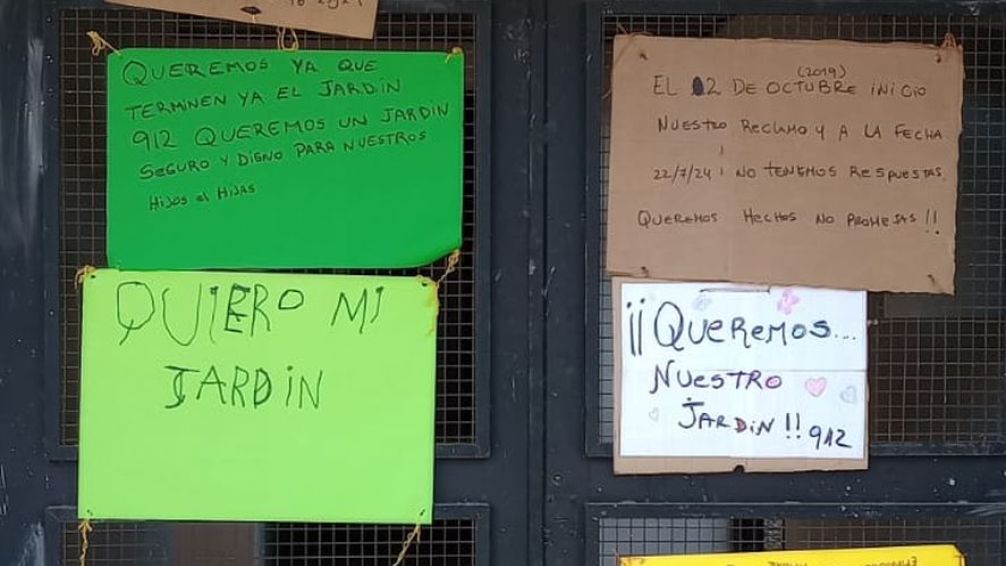 QUEREMOS YA QUE
TERMINEN YA EL JARDIN
912 QUEREMOS UN JARDIN
SEGURO Y DIGNO PARA NUESTROS
HIJOS e HIJAS
QUIERO MI
JARDIN
(2019)
EL 12 DE OCTUBRE INICIO
NUESTRO RECLAMO Y A LA FECHA
22/7/24 NO TENEMOS RESPUESTAS.
QUEREMOS HECHOS NO PROMESAS!!
¡¡QUEREMOS...
NUESTRO
JARDIN!! 912